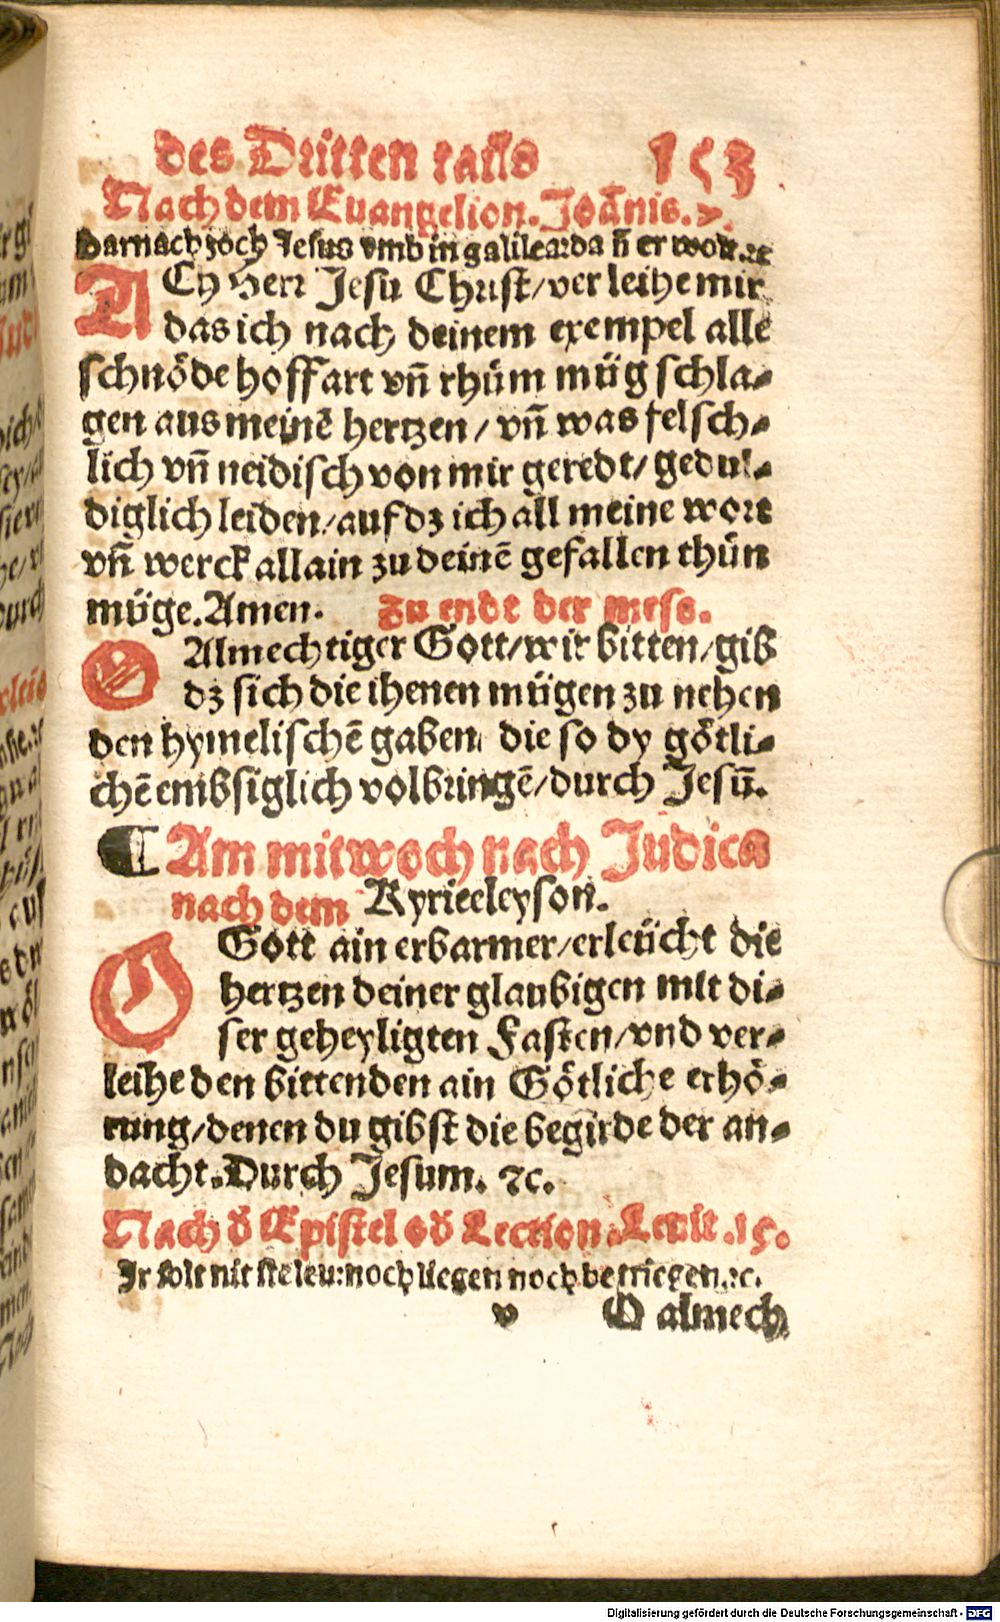 des Dritten tails 153
Nach dem Euangelion. Joānis. 7.
Darnach zoch Jesus vmb in galilea: da ñ er wolt. ⁊c
ACh Herr Jesu Christ / verleihe mir
das ich nach deinem exempel alle
schnöde hoffart vñ rhům můg schla⸗
gen aus meinē hertzen / vñ was felsch⸗
lich vñ neidisch von mir geredt / gedul⸗
diglich leiden / auf dz ich all meine wort
vñ werck allain zu deinē gefallen thůn
můge. Amen. Zu ende der mess.
O Almechtiger Gott / wir bitten / gib
dz sich die ihenen můgen zu nehen
den hymelischē gaben, die so dy götli⸗
chē embsiglich volbringē / durch Jesū.
¶ Am mitwoch nach Judica
nach dem Kyrieeleyson.
O Gott ain erbarmer / erleücht die
hertzen deiner glaubigen mit di⸗
ser geheyligten Fasten / vnd ver⸗
leihe den bittenden ain Götliche erhö⸗
rung / denen du gibst die begirde der an⸗
dacht. Durch Jesum. ⁊c.
Nach d̄ Epistel od̄ Lection. Leuit. 19.
Ir solt nit stelen: noch liegen noch betriegen. ⁊c.
v O almech
Digitalisierung gefördert durch die Deutsche Forschungsgemeinschaft - DFG